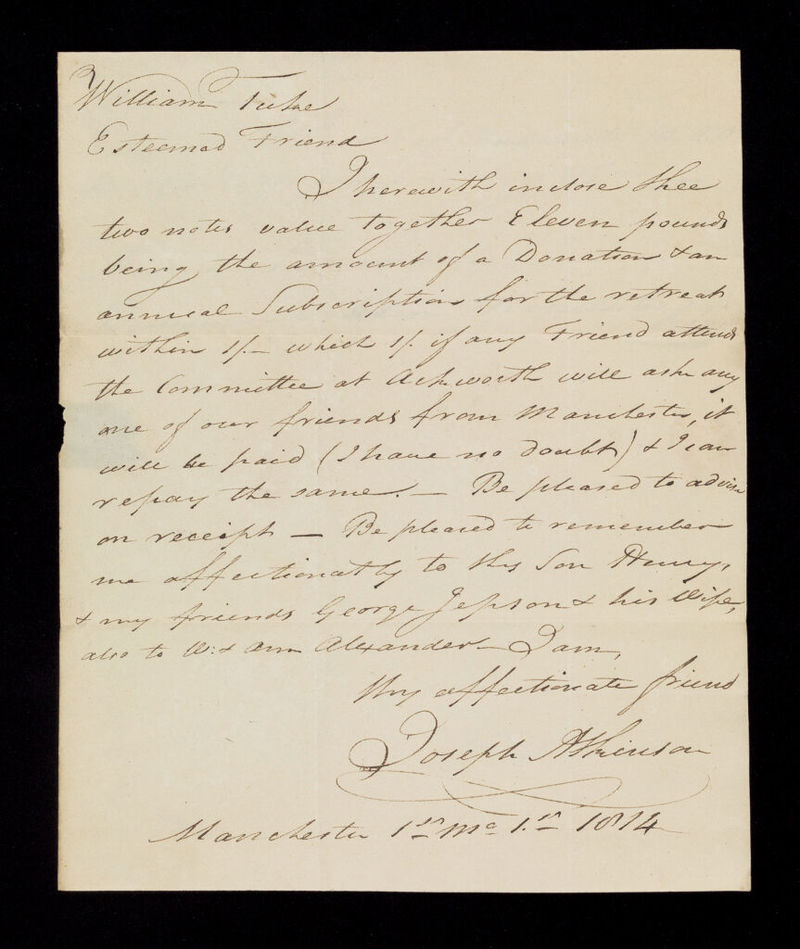 William Tuke
Esteemed Friend
I herewith inclose thee
two notes value together Eleven pounds
being the amount of a Donation & an
annual Subscription for the retreat
within 1/- which 1/ if any Friend attends
the Committee at Ackworth will ask any
one of our friends from Manchester, it
will be paid (I have no doubt) & I can
repay the same. — Be pleased to advise
on receipt — Be pleased to remember
me affectionatly to thy Son Henry,
& my friends George Jepson & his Wife,
also to W: & Ann Alexander I am,
thy affectionate friend
Joseph Atkinson
Manchester 1st mo 1st 1814